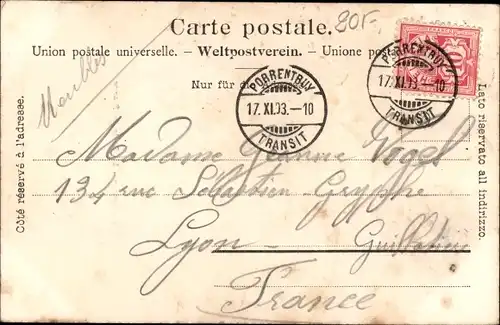 Carte postale.
20F.
Union postale universelle. – Weltpostverein. – Unione posta
Nur für di
Meubles
PORRENTRUY
17.XI.03.–10
TRANSIT
PORRENTRUY
17.XI.03.–10
TRANSIT
10
Côté réservé à l'adresse.
Lato riservato all indirizzo.
Madame Jeanne Vogel
134 rue Sébastien-Gryphe
Lyon - Guillotière
France